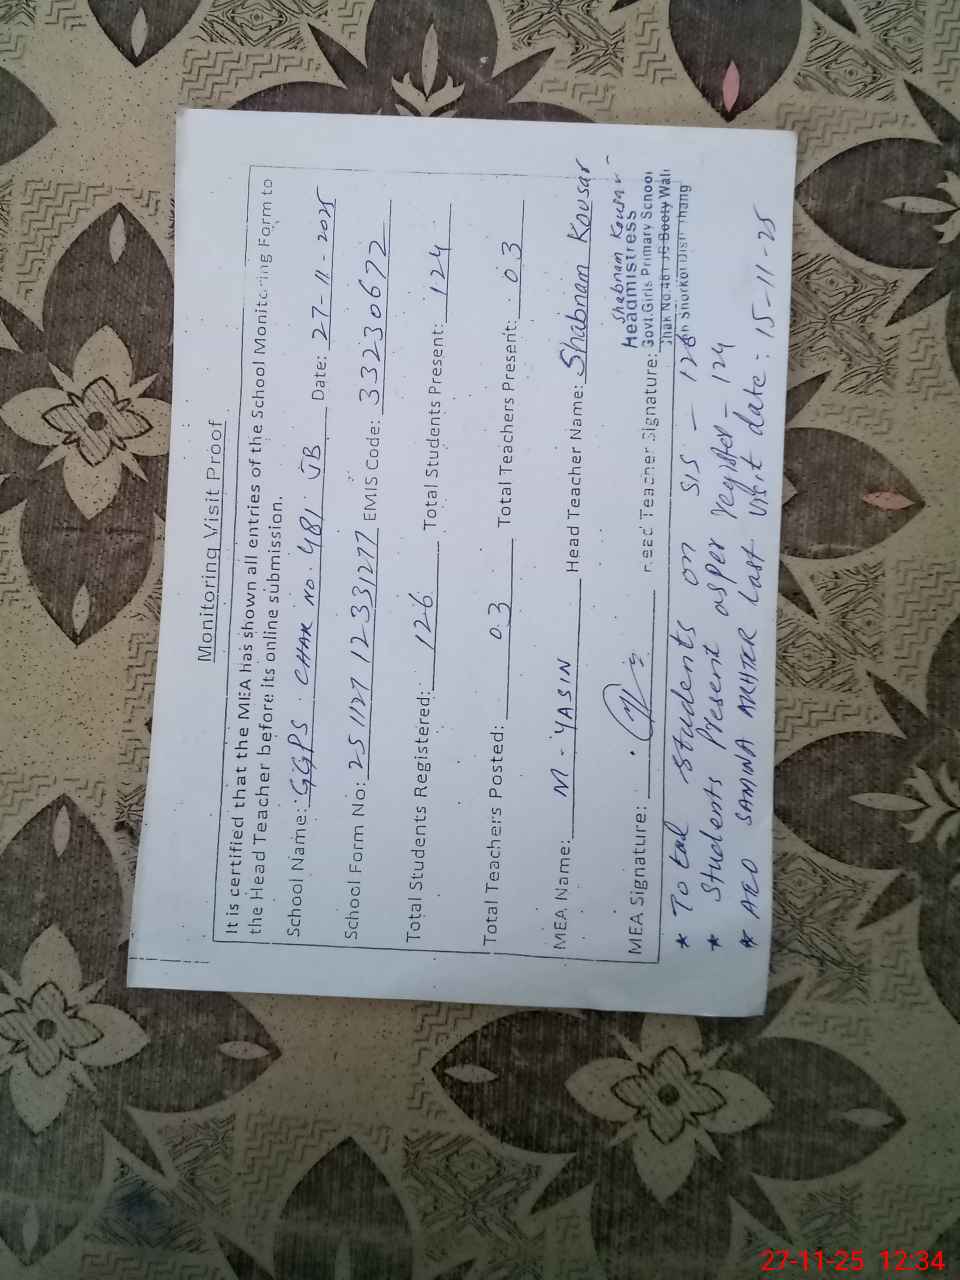 Monitoring Visit Proof
It is certified that the MEA has shown all entries of the School Monitoring Form to
the Head Teacher before its online submission.
School Name: GGPS CHAK NO. 481 JB Date: 27-11-2025
School Form No: 251127 12331277 EMIS Code: 33230672
Total Students Registered: 126 Total Students Present: 124
Total Teachers Posted: 03 Total Teachers Present: 03
MEA Name: M-YASIN Head Teacher Name: Shabnam Kousar
MEA Signature: Head Teacher Signature: Shabnam Kousar
Headmistress
Govt.Girls Primary School
Chak No.481 JB Booty Wali
Shorkot Distt Jhang
* Total Students on SIS - 126
* Students Present as per register - 124
* AEO SAMINA AKHTER Last visit date - 15-11-25
27-11-25 12:34